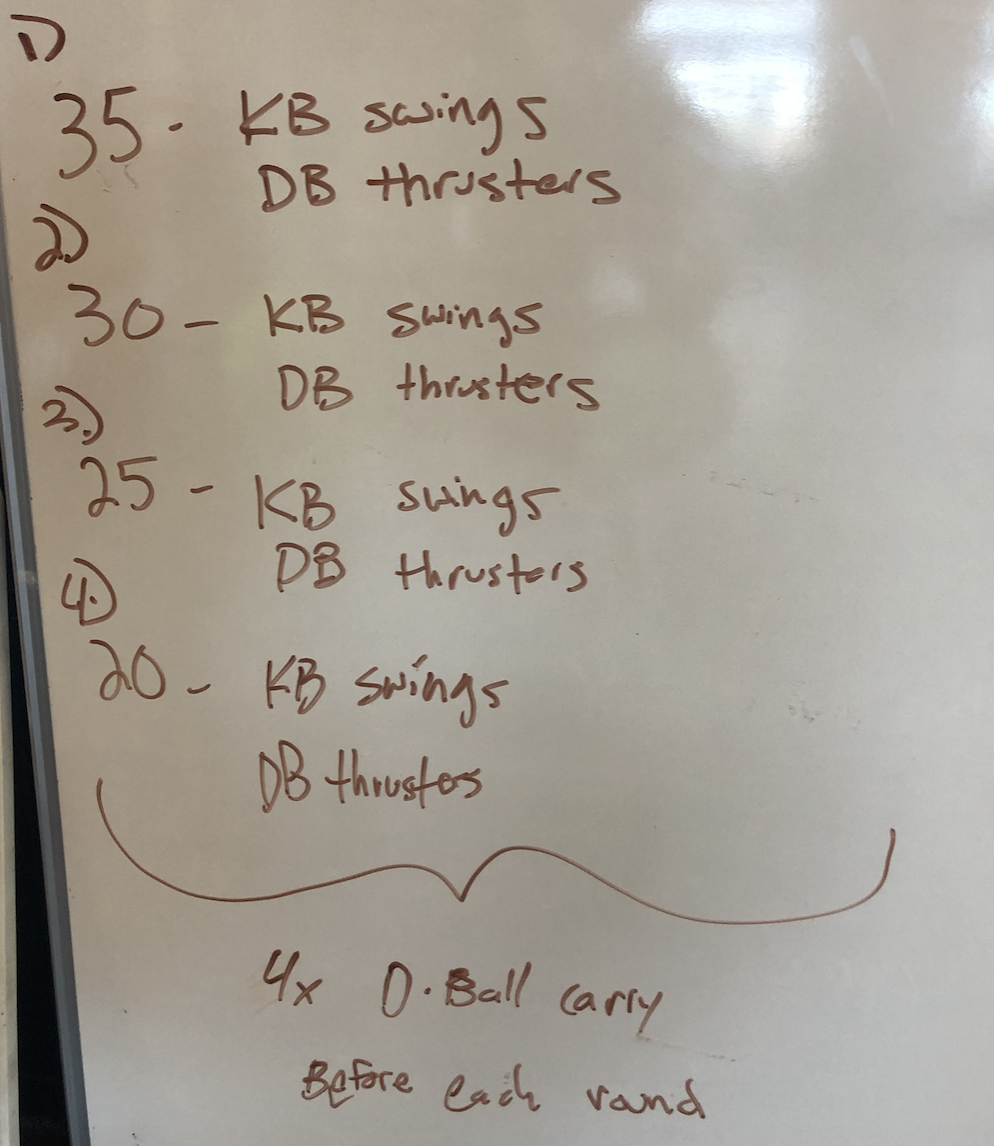 1)
35 - KB swings
DB thrusters
2.)
30 - KB swings
DB thrusters
3.)
25 - KB swings
DB thrusters
4.)
20 - KB swings
DB thrusters
4x D. Ball carry
Before each round